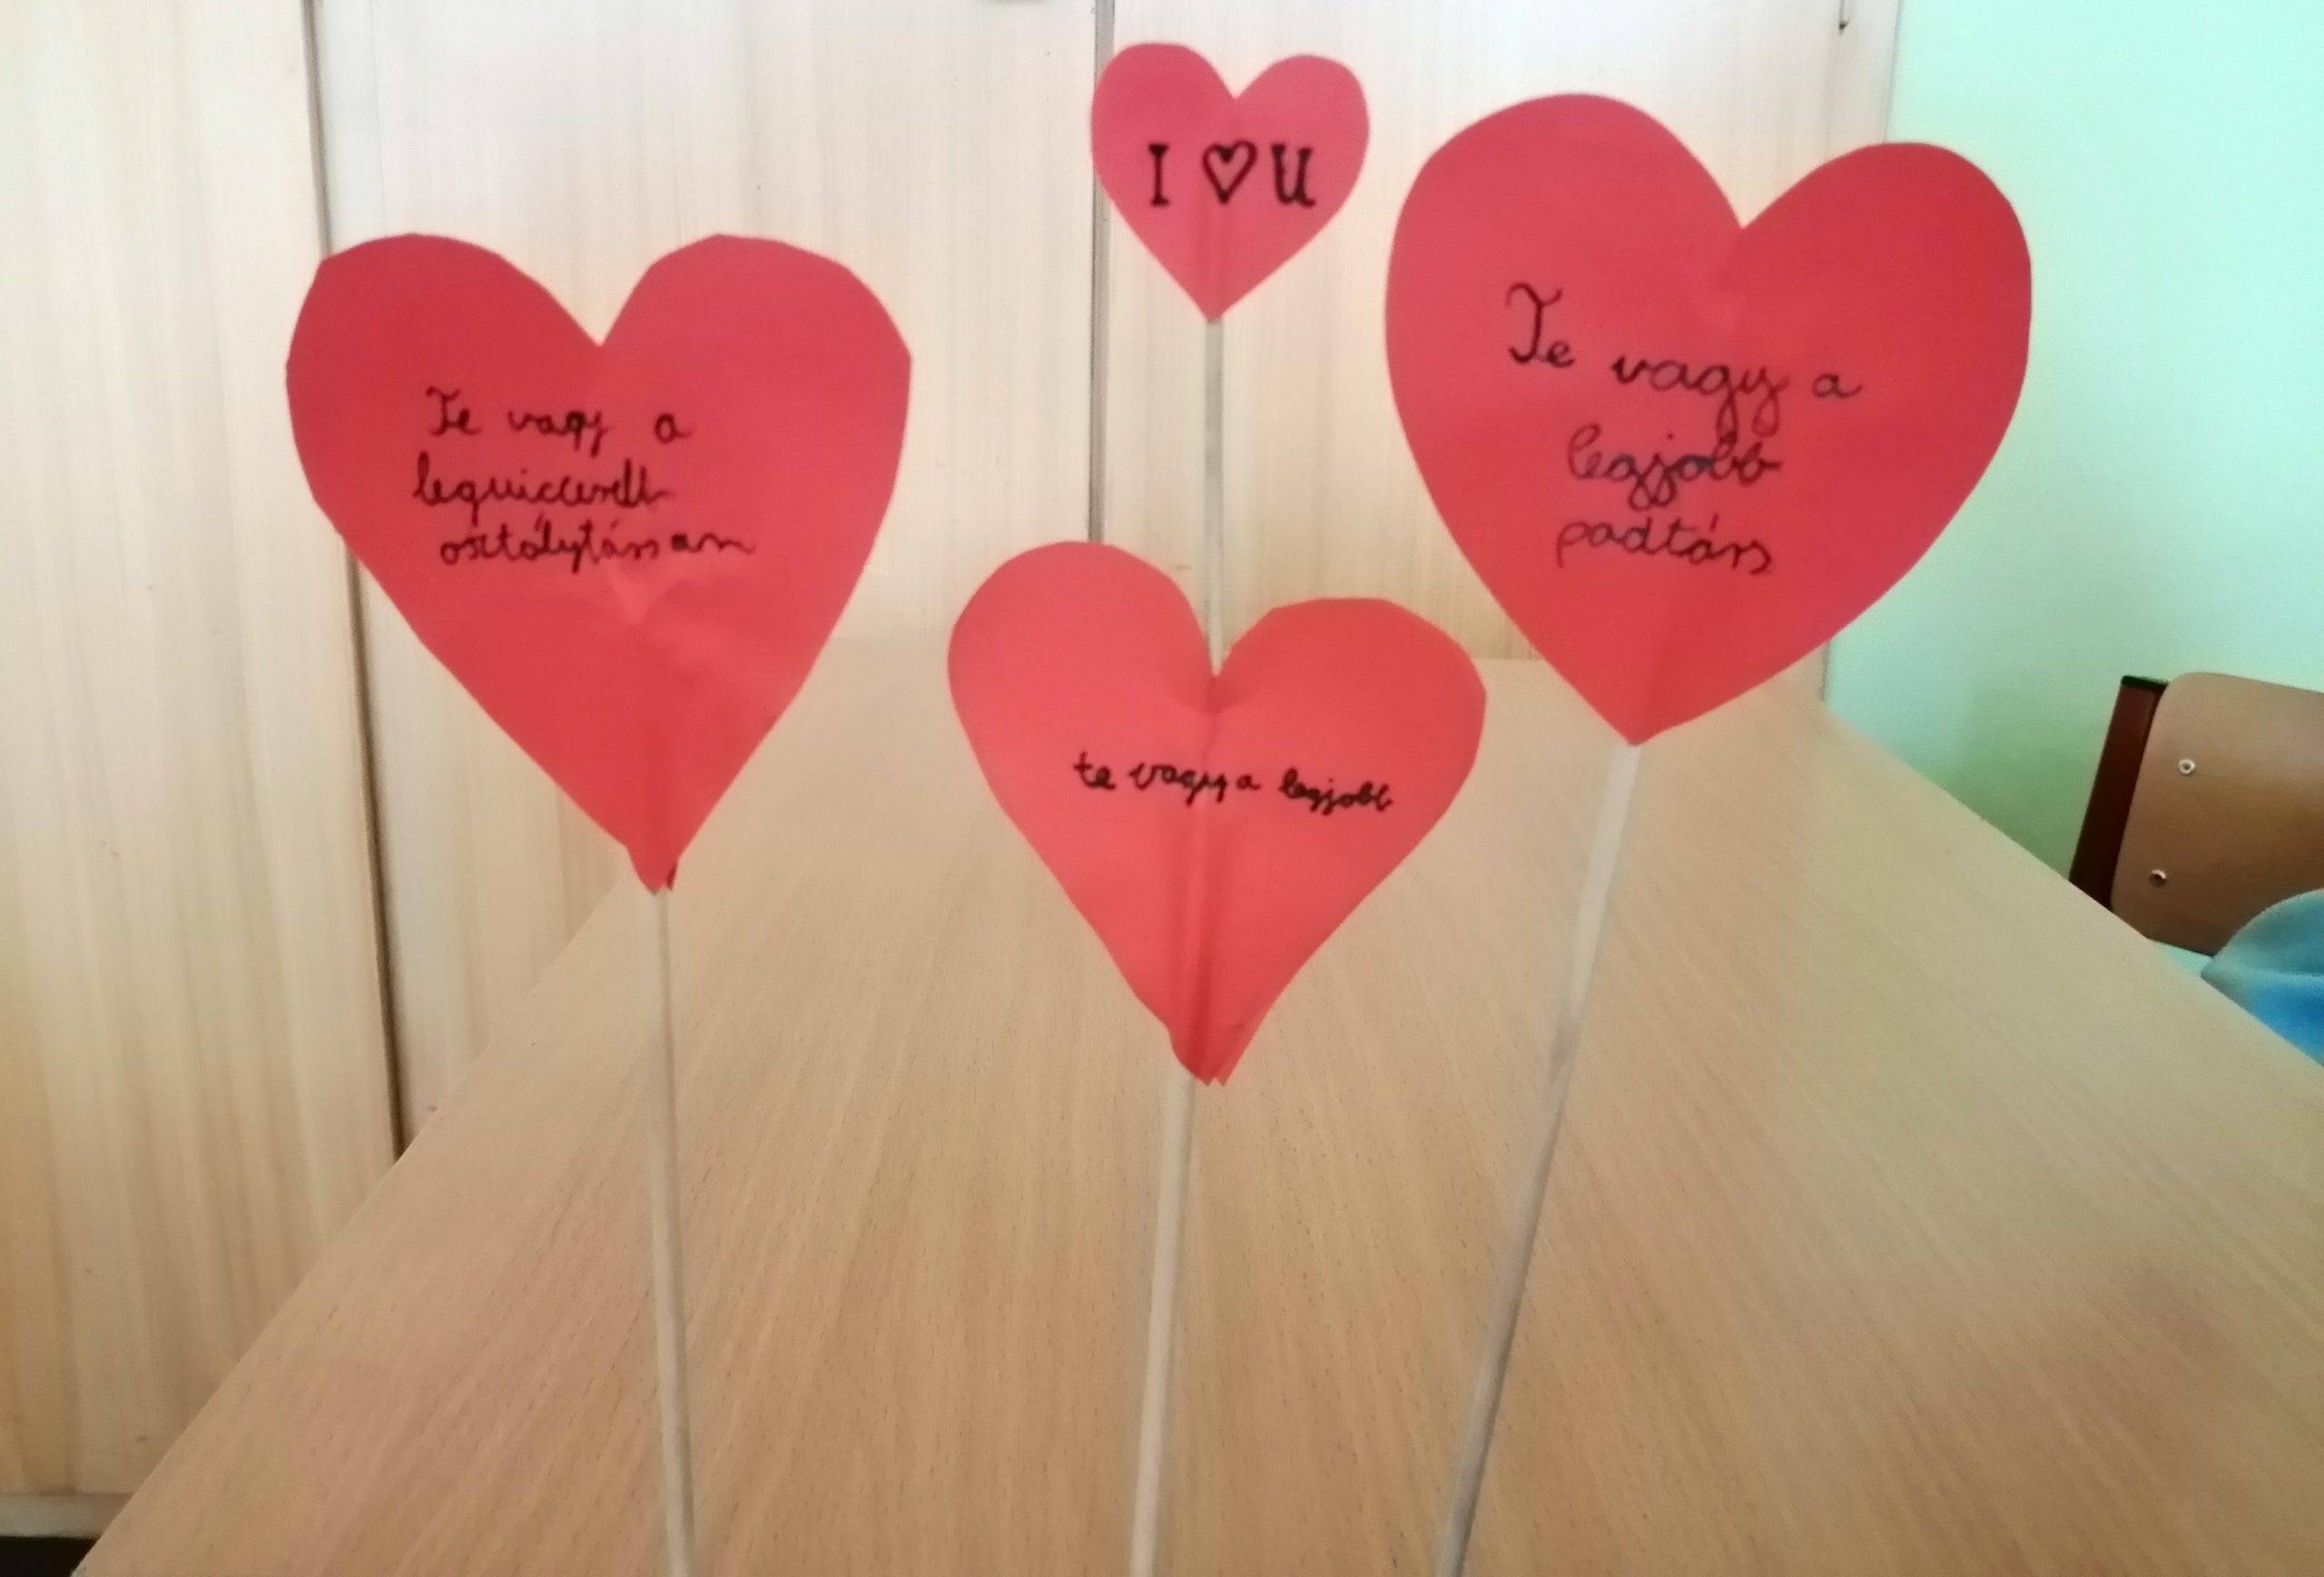 I ♡ U
Te vagy a
legviccesebb
osztálytársam
Te vagy a
legjobb
padtárs
te vagy a legjobb